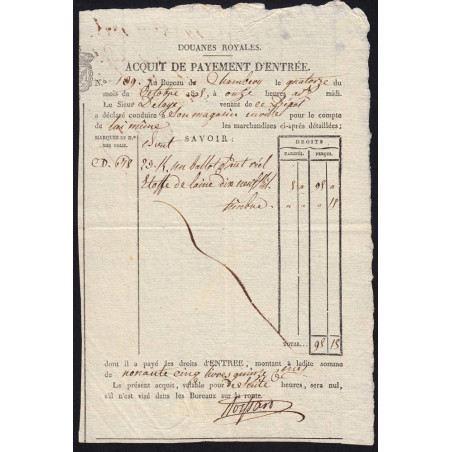 DOUANES ROYALES.
ACQUIT DE PAYEMENT D'ENTRÉE.
N.° 189. Au Bureau de Chambéry le quatorze du
mois de Octobre 18 à onze heures du midi.
Le Sieur Delaye venant de ce Dépôt
a déclaré conduire à Son magasin en ville pour le compte
de lui même les marchandises ci-après détaillées;
MARQUES ET N.os DES COLIS.
SAVOIR:
DROITS
TARIFÉS. PERÇUS.
C D. 678 23. K. un ballot
Etoffe de laine dix neuf
Timbre 15
TOTAL. 95 15
dont il a payé les droits d'ENTRÉE, montant à ladite somme
de nonante cinq livres quinze
Le présent acquit, valable pour heures, sera nul,
s'il n'est visé dans les Bureaux sur la route.